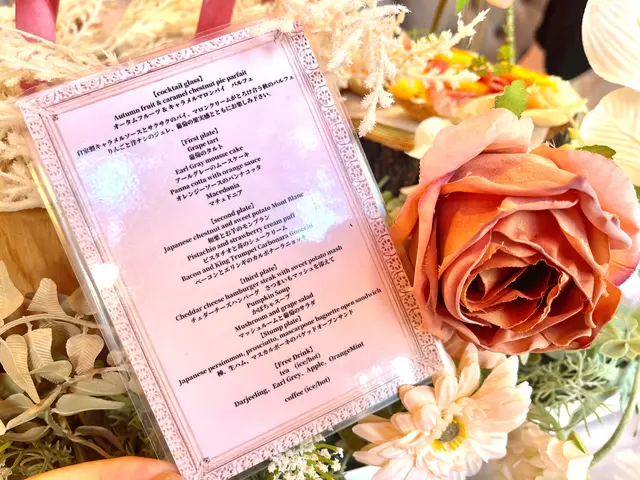 [cocktail glass]
Autumn fruit & caramel chestnut pie parfait
オータムフルーツ＆キャラメルマロンパイ　パルフェ
自家製キャラメルソースとサクサクのパイ、マロンクリームがとろけ合う秋のパルフェ
りんごと洋ナシのジュレ、葡萄の果実感とともにお楽しみ下さい。
[First plate]
Grape tart
葡萄のタルト
Earl Gray mousse cake
アールグレーのムースケーキ
Panna cotta with orange sauce
オレンジソースのパンナコッタ
Macedonia
マチェドニア
[second plate]
Japanese chestnut and sweet potato Mont Blanc
和栗とお芋のモンブラン
Pistachio and strawberry cream puff
ピスタチオと苺のシュークリーム
Bacon and King Trumpet Carbonara Gnocchi
ベーコンとエリンギのカルボナーラニョッキ
[third plate]
Cheddar cheese hamburger steak with sweet potato mash
チェダーチーズハンバーグ　さつまいもマッシュを添えて
Pumpkin Soup
かぼちゃスープ
Mushroom and grape salad
マッシュルームと葡萄のサラダ
[Stump plate]
Japanese persimmon, prosciutto, mascarpone baguette open sandwich
柿、生ハム、マスカルポーネのバゲットオープンサンド
[Free Drink]
tea　(ice/hot)
Darjeeling、Earl Grey、Apple、OrangeMint
coffee (ice/hot)